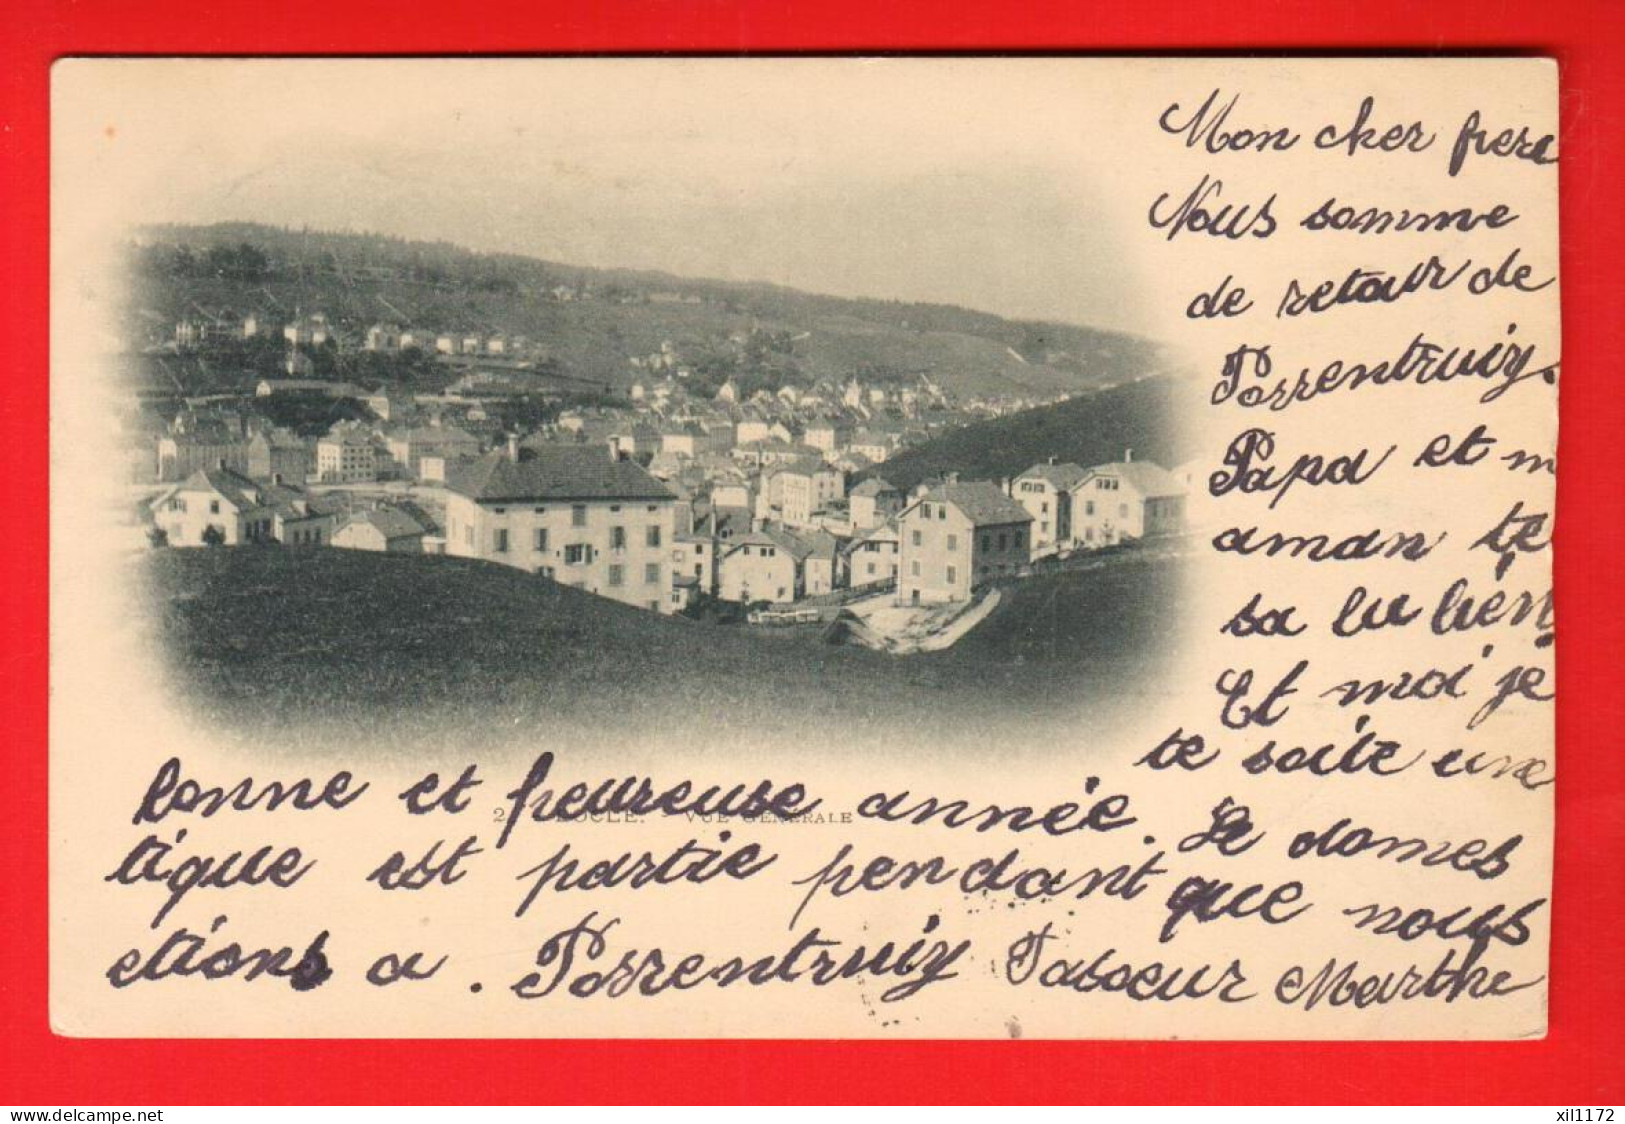 Mon cher frere
Nous somme
de retour de
Porrentruiy.
Papa et m
aman te
sa lu bien
Et moi je
te saite une
bonne et heureuse année. Le domes
tique est partie pendant que nous
etions a. Porrentruiy Tasoeur Marthe
LOCLE. - VUE GÉNÉRALE
www.delcampe.net
xil1172